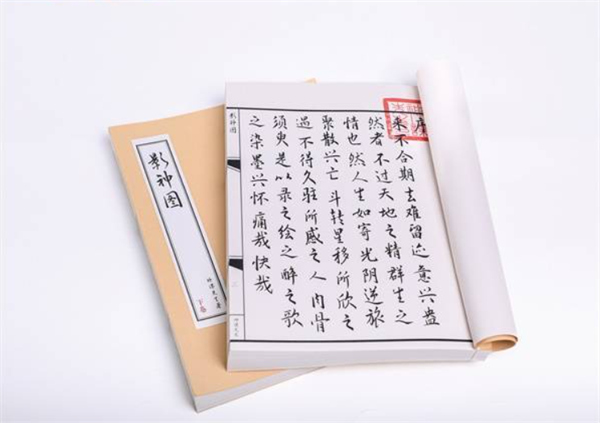 序
来不合期去难留迹意兴盎
然者不过天地之精群生之
情也然人生如寄光阴逆旅
聚散兴亡斗转星移所欣之
遇不待久驻所感之人肉骨
须臾是以录之绘之醉之歌
之染墨兴怀痛哉快哉
影神图
影神图
下卷